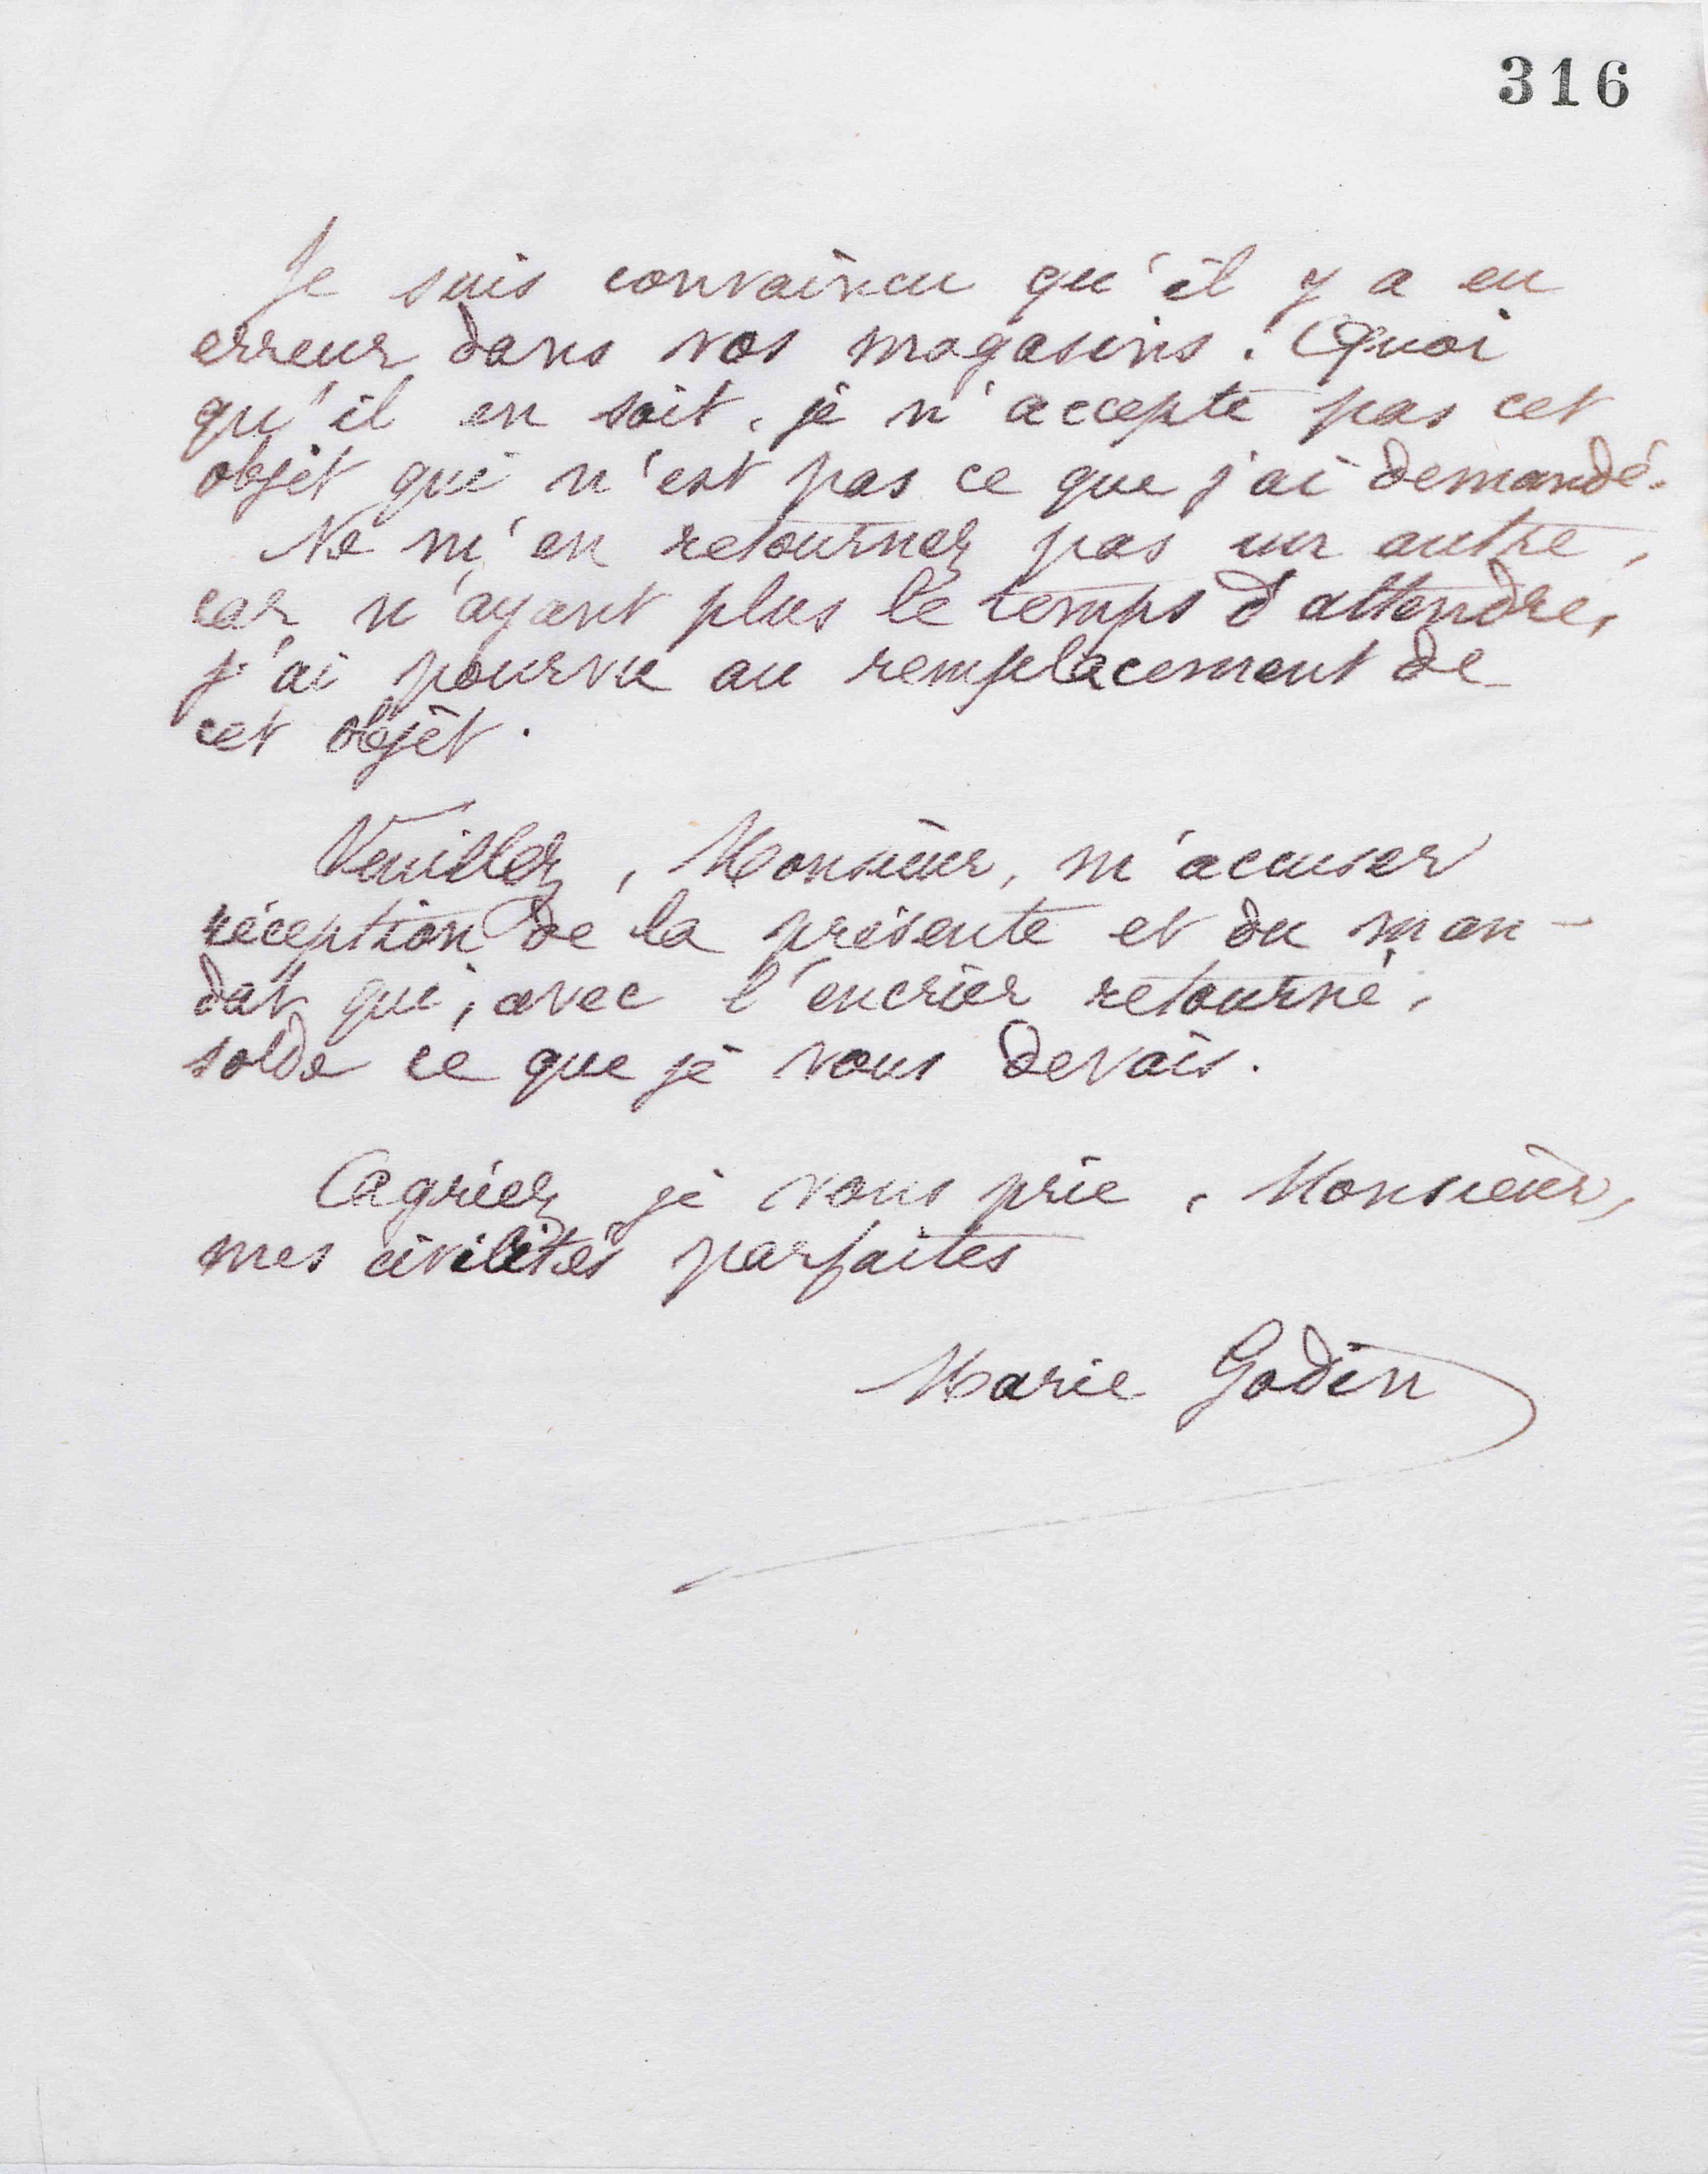 316
Je suis convaincu qu'il y a eu
erreur dans vos magasins. Quoi
qu'il en soit, je n'accepte pas cet
objet qui n'est pas ce que j'ai demandé.
Ne m'en retournez pas un autre,
car n'ayant plus le temps d'attendre,
j'ai pourvu au remplacement de
cet objet.
Veuillez, Monsieur, m'accuser
réception de la présente et du man-
dat qui, avec l'encrier retourné,
solde ce que je vous devais.
Agréez je vous prie, Monsieur,
mes civilités parfaites
Marie Godin